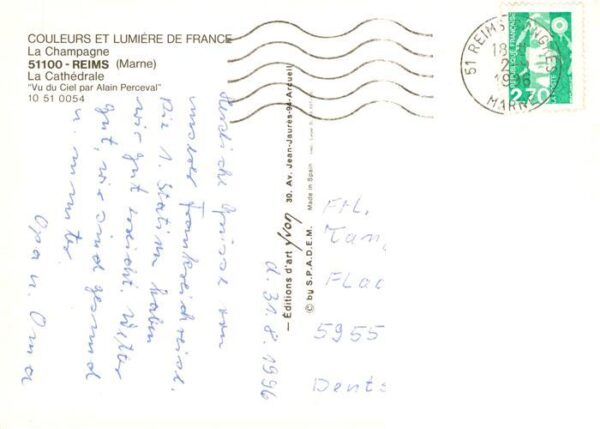 COULEURS ET LUMIÈRE DE FRANCE
La Champagne
51100 - REIMS (Marne)
La Cathédrale
"Vu du Ciel par Alain Perceval"
10 51 0054
51 REIMS
18 H
2 - 9
1996
MARNE
RÉPUBLIQUE FRANÇAISE
2,70
d. 31.8.1996
Herzliche Grüsse von
unserer Frankreichreise.
Die 1. Station haben
wir gut erreicht. Wetter
gut, wir sind gesund
u. munter
Opa u. Oma
— Éditions d'art Yvon 30. Av. Jean-Jaurès-94-Arcueil
© by S.P.A.D.E.M. Made in Spain
Fam.
FLAC
5955